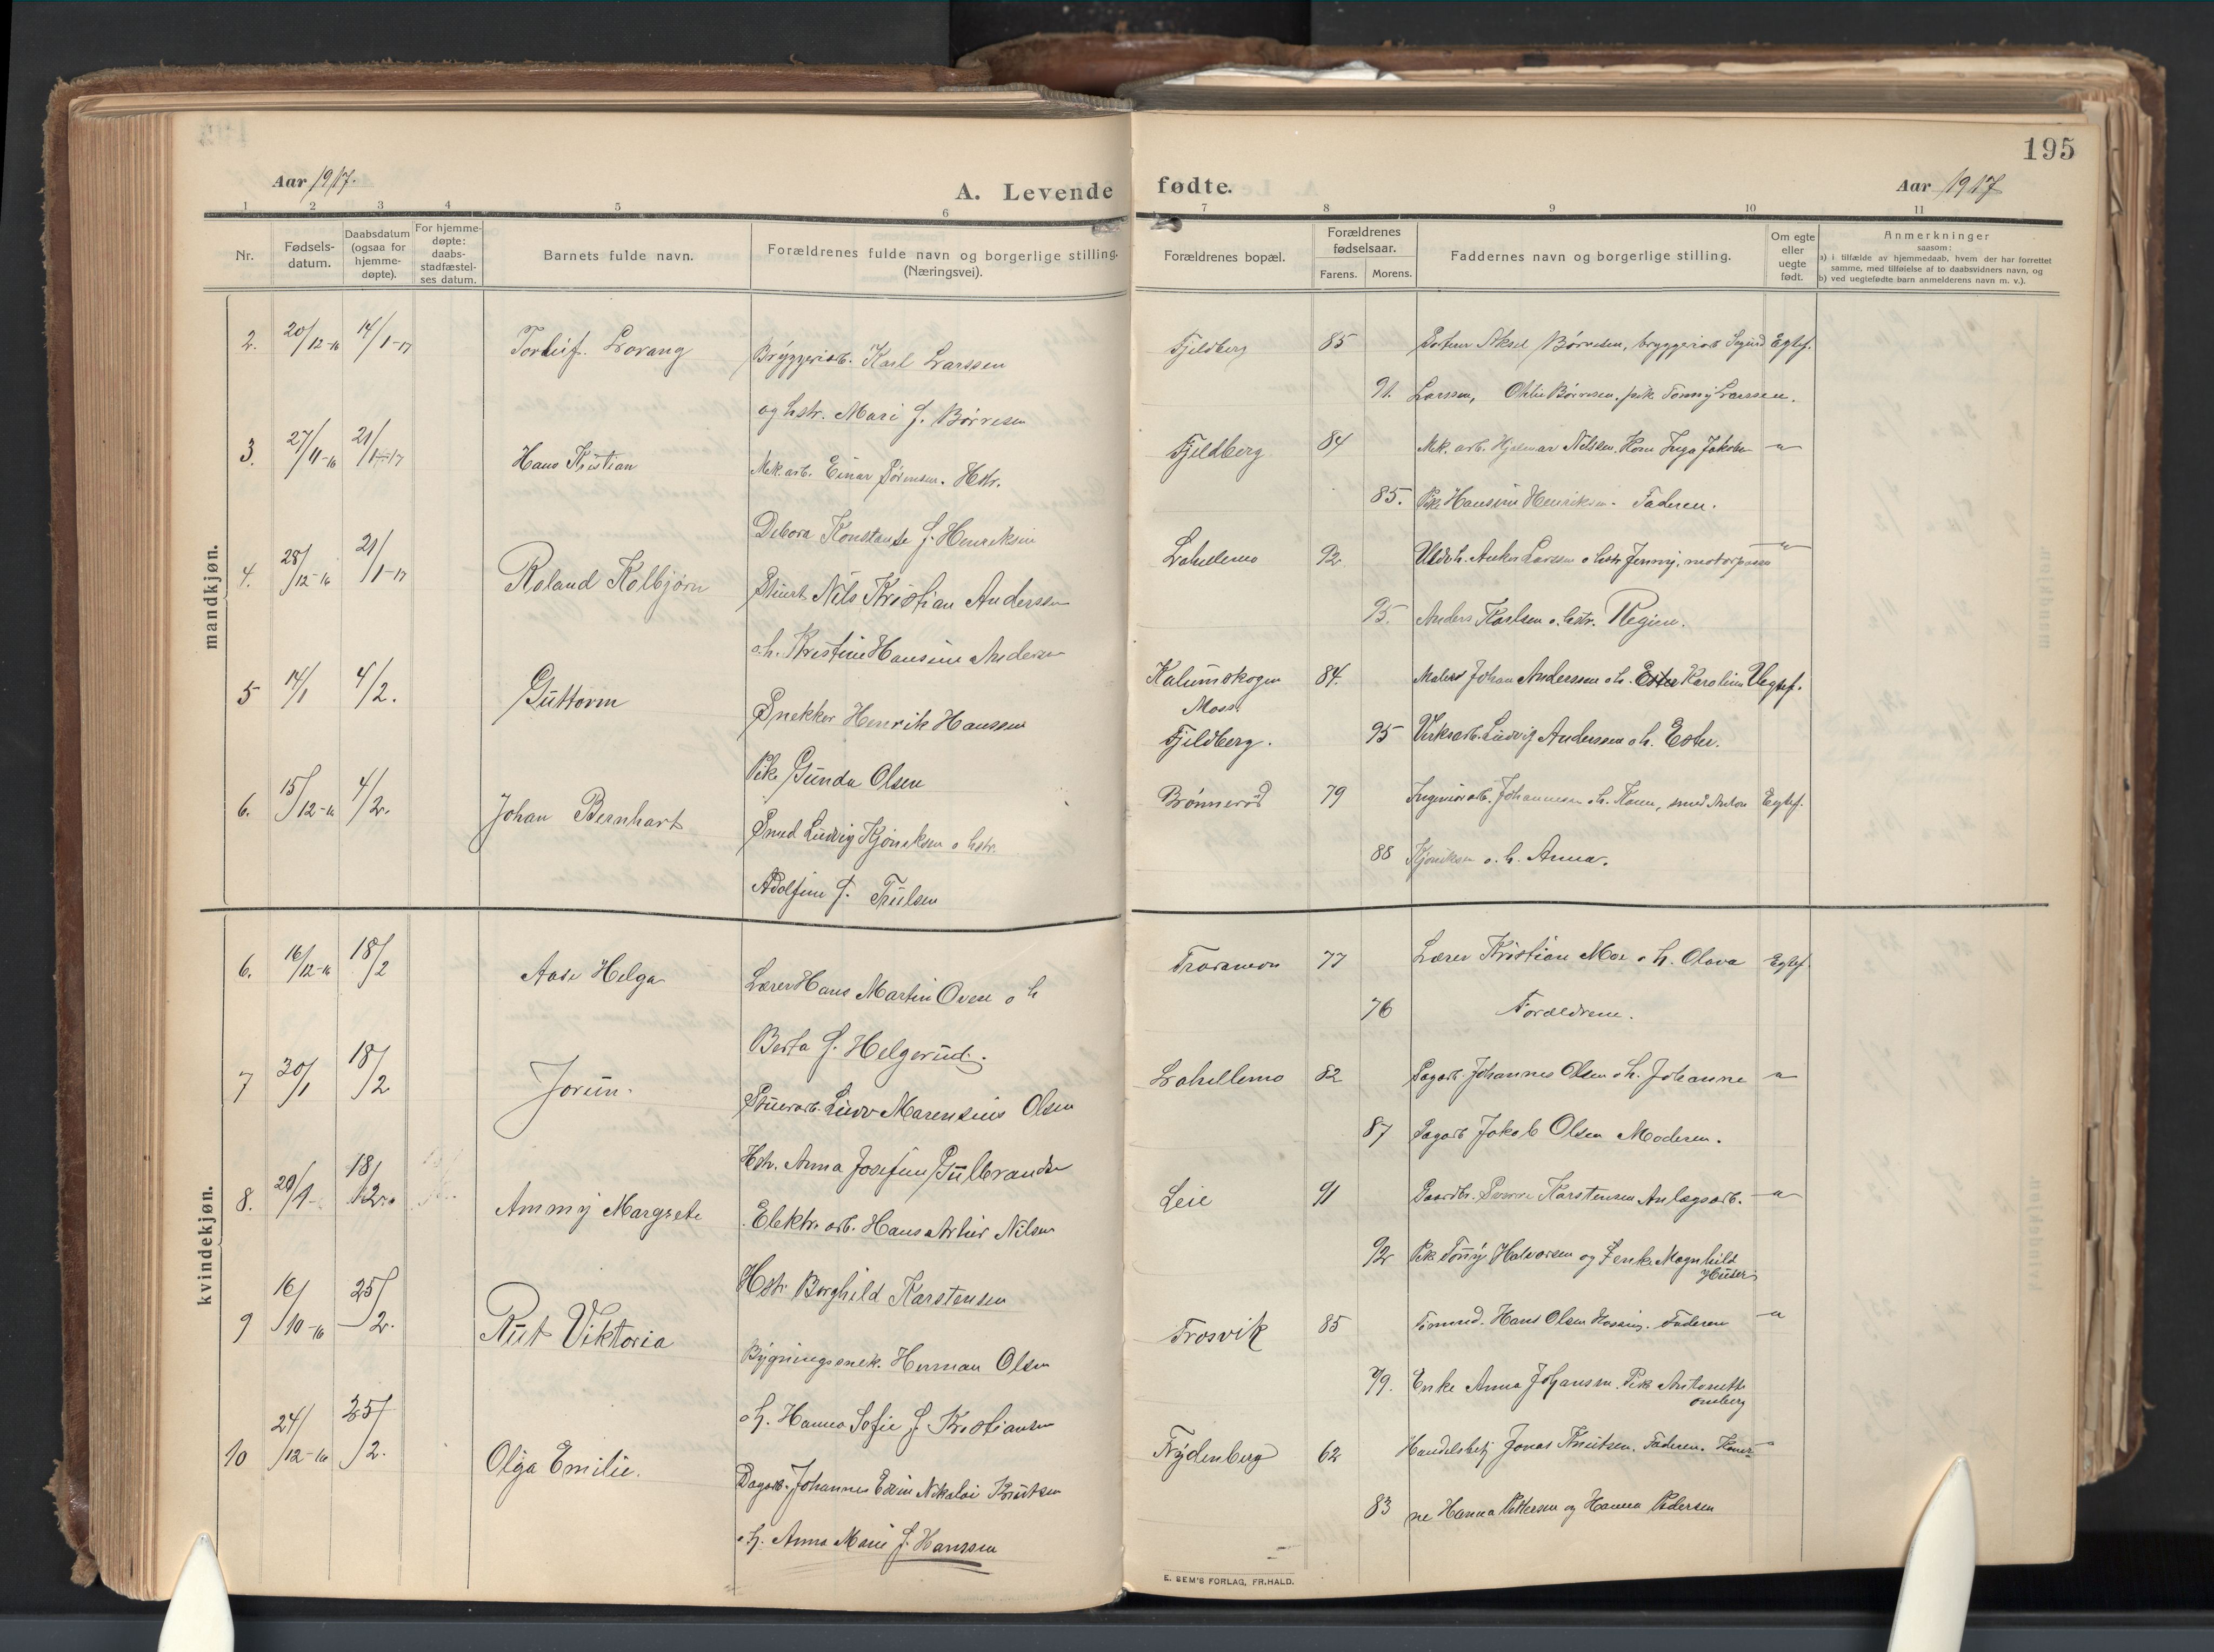 195
Aar 1917.
A. Levende fødte.
Aar 1917
1 2 3 4 5 6 7 8 9 10 11
Nr.
Fødsels-
datum.
Daabsdatum
(ogsaa for
hjemme-
døpte).
For hjemme-
døpte:
daabs-
stadfæstel-
ses datum.
Barnets fulde navn.
Forældrenes fulde navn og borgerlige stilling.
(Næringsvei).
Forældrenes bopæl.
Forældrenes
fødselsaar.
Farens. Morens.
Faddernes navn og borgerlige stilling.
Om egte
eller
uegte
født.
Anmerkninger
saasom:
a) i tilfælde av hjemmedaab, hvem der har forrettet
samme, med tilføielse af to daabsvidners navn, og
b) ved uegtefødte barn anmelderens navn m. v.).
mandkjøn.
2. 20/12-16 14/1-17 Torleif. Lorang Bryggeriarb. Karl Larssen Fjeldberg 85 Aksel Børresen, bryggeriarb Sigurd Egtef.
og hstr. Mari f. Børresen 91. Larssen, Børresen, pike Larssen.
3. 27/11-16 21/1-17 Hans Kristian Mek. arb. Einar Sørensen. Hstr. Fjeldberg 84 Mek. arb. Hjalmar Nilssen, Kone Inga Jakobs -"-
Debora Konstanse f. Henriksen 85. Pike Hansine Henriksen. Faderen.
4. 28/12-16 21/1-17 Roland Kolbjørn Nils Kristian Anderssen Lahellemo 92. Larssen o hstr Jenny, -"-
o. h. Kristine Hansine Andersen 95. Anders Karlsen o. hstr. Regine.
5 14/1 4/2. Guttorm Snekker Henrik Hanssen Kalumskogen 84. Maler Johan Anderssen o h. Ester Karoline Uegtef.
Moss.
Pike Gunda Olsen Fjeldberg. 95 Verksarb. Ludvig Anderssen o h. Ester.
6. 15/12-16 4/2. Johan Bernhart Smed Ludvig Kjøniksen o hstr. Brønnerød 79 Johannesen o h. smed Anton Egtef.
Adolfine f. Trulsen 88 Kjøniksen o. h. Anna.
kvindekjøn.
6. 16/12-16 18/2 Aase Helga Lærer Hans Martin Oven o h 77 Lærer Kristian Moe o h. Olava Egtef.
Berta f. Helgerud. 76 Forældrene.
7 30/1 18/2 Jorun. Marensius Olsen Lahellemo 82 Sagarb. Johannes Olsen o h. Johanne -"-
Hstr. Anna Josefine Gulbrandsen 87 Sagarb Jakob Olsen Moderen.
8. 20/1 18/2 Ammy Margrete Elektr. arb. Hans Artur Nilsen Leie 91 Karstensen Anlægsarb. -"-
Hstr. Borghild Karstensen 92 Pike Halvorsen og Magnhild
9 16/10-16 25/2. Rut Viktoria Bygningssnek. Herman Olsen Trosvik 85 Hans Olsen Faderen -"-
o h. Hanna Sofie f. Kristiansen 79. Enke Anna Johansen. Pike Antonette
10 24/12-16 25/2. Olga Emilie. Dagarb. Johannes Edvin Nikolai Knutsen Frydenberg 62 Handelsbetj Jonas Knutsen. Faderen. Koner-
o h. Anna Marie f. Hanssen 83 ne Hanna Pettersen og Hanna Pedersen
E. SEM'S FORLAG, FR.HALD.